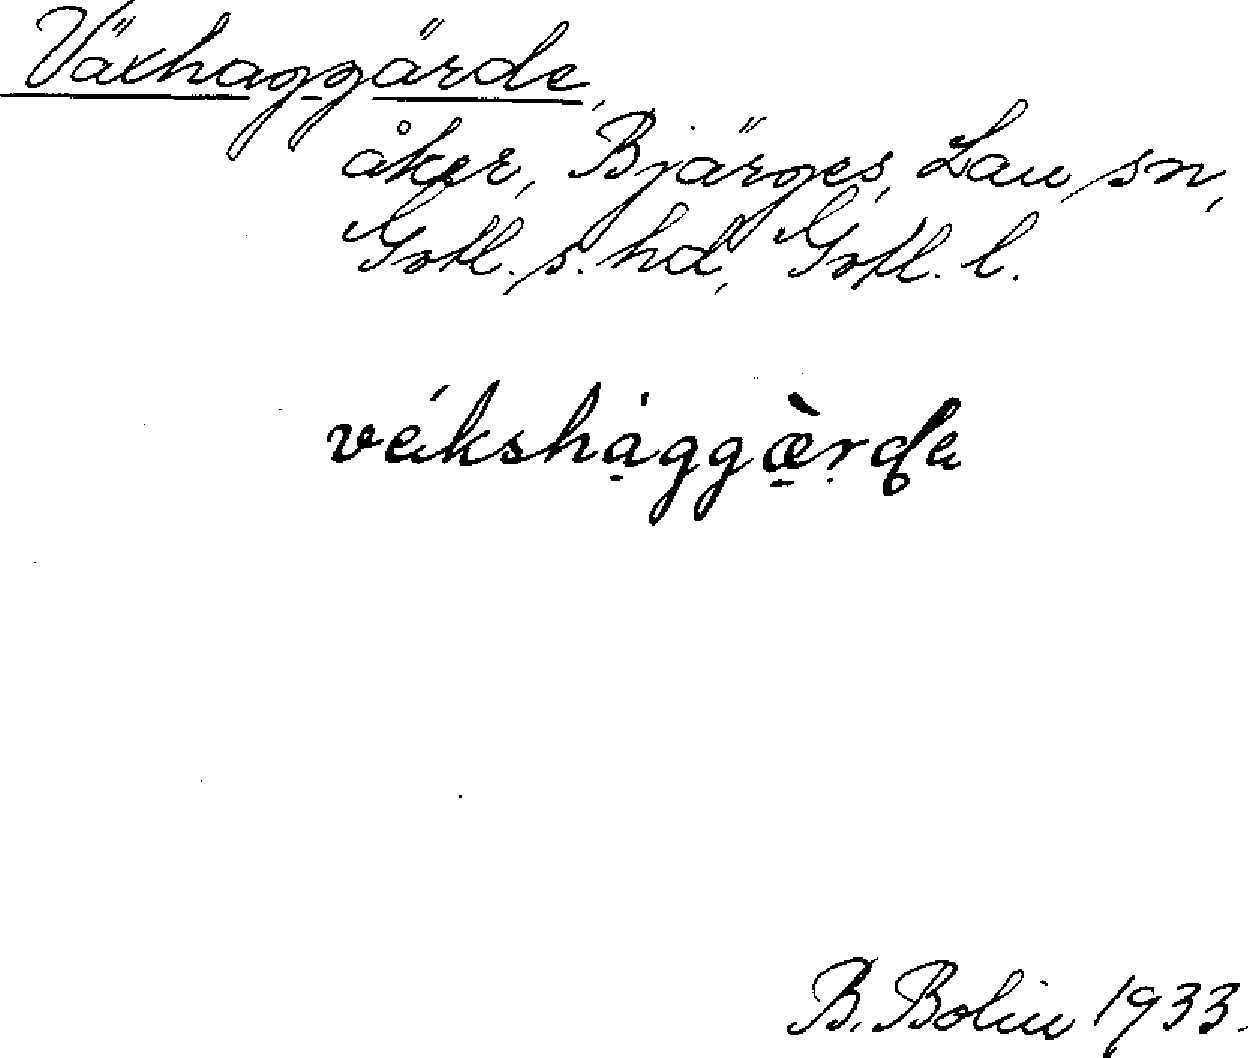 Växhaggärde,
åker, Bjärges, Lau sn,
Gotl. s. hd, Gotl. l.
vákshàggæ̀rda
B. Bolin 1933.